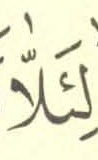 لِئَلَّا